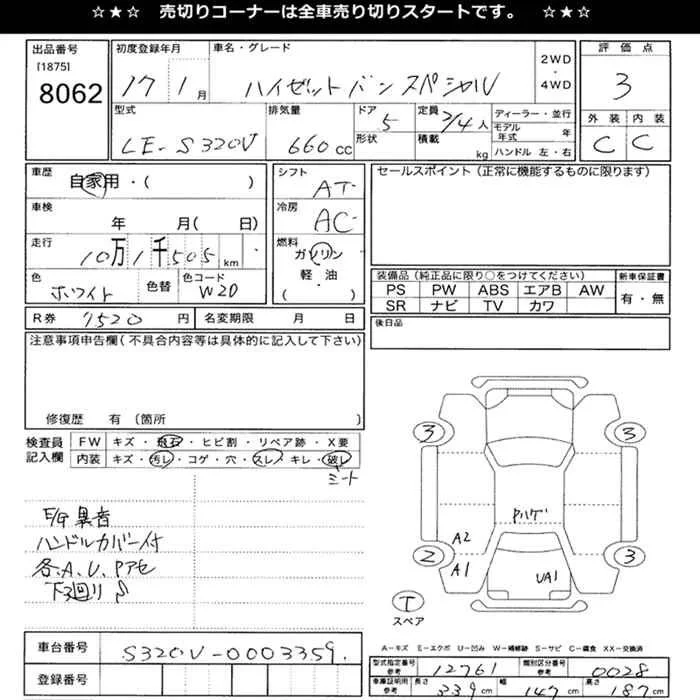 ☆★☆ 売切りコーナーは全車売り切りスタートです。 ☆★☆
出品番号 [1875] 8062
初度登録年月 17 1月
車名・グレード ハイゼットバン スペシャル
2WD・4WD
評価点 3
型式 LE-S320V
排気量 660cc
ドア 5
形状
定員 2/4人
積載 kg
ディーラー・並行
モデル年式 年
ハンドル 左・右
外装 C 内装 C
車歴 自家用・( )
シフト AT
セールスポイント(正常に機能するものに限ります)
車検 年 月( 日)
冷房 AC
走行 10万1千505km
燃料 ガソリン 軽・油 ( )
色 ホワイト 色替 色コード W20
装備品(純正品に限り○をつけてください) 新車保証書
PS PW ABS エアB AW 有・無
SR ナビ TV カワ
R券 7520円 名変期限 月 日
後日品
注意事項申告欄(不具合内容等は具体的に記入して下さい)
修復歴 有 (箇所 )
検査員記入欄
FW キズ・飛石・ヒビ割・リペア跡・X要
内装 キズ・汚レ・コゲ・穴・スレ・キレ・破レ
シート
E/G異音
ハンドルカバー付
各、A、U、Pアセ
下廻りS
3 3
Pハゲ
A2
2 A1 UA1 3
T
スペア
A-キズ E-エクボ U-凹み W-補修跡 S-サビ C-腐食 XX-交換済
車台番号 S320V-0003359
登録番号
型式指定番号 参考 12761 類別区分番号 参考 0028
車庫証明用 参考 長さ 339cm 幅 147cm 高さ 187cm